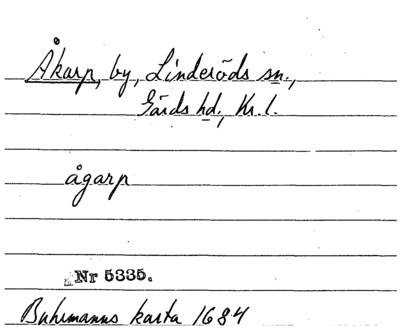 Åkarp, by, Linderöds sn.,
Gärds hd., Kr. l.
ågarp
Nr 5335.
Buhrmanns karta 1684